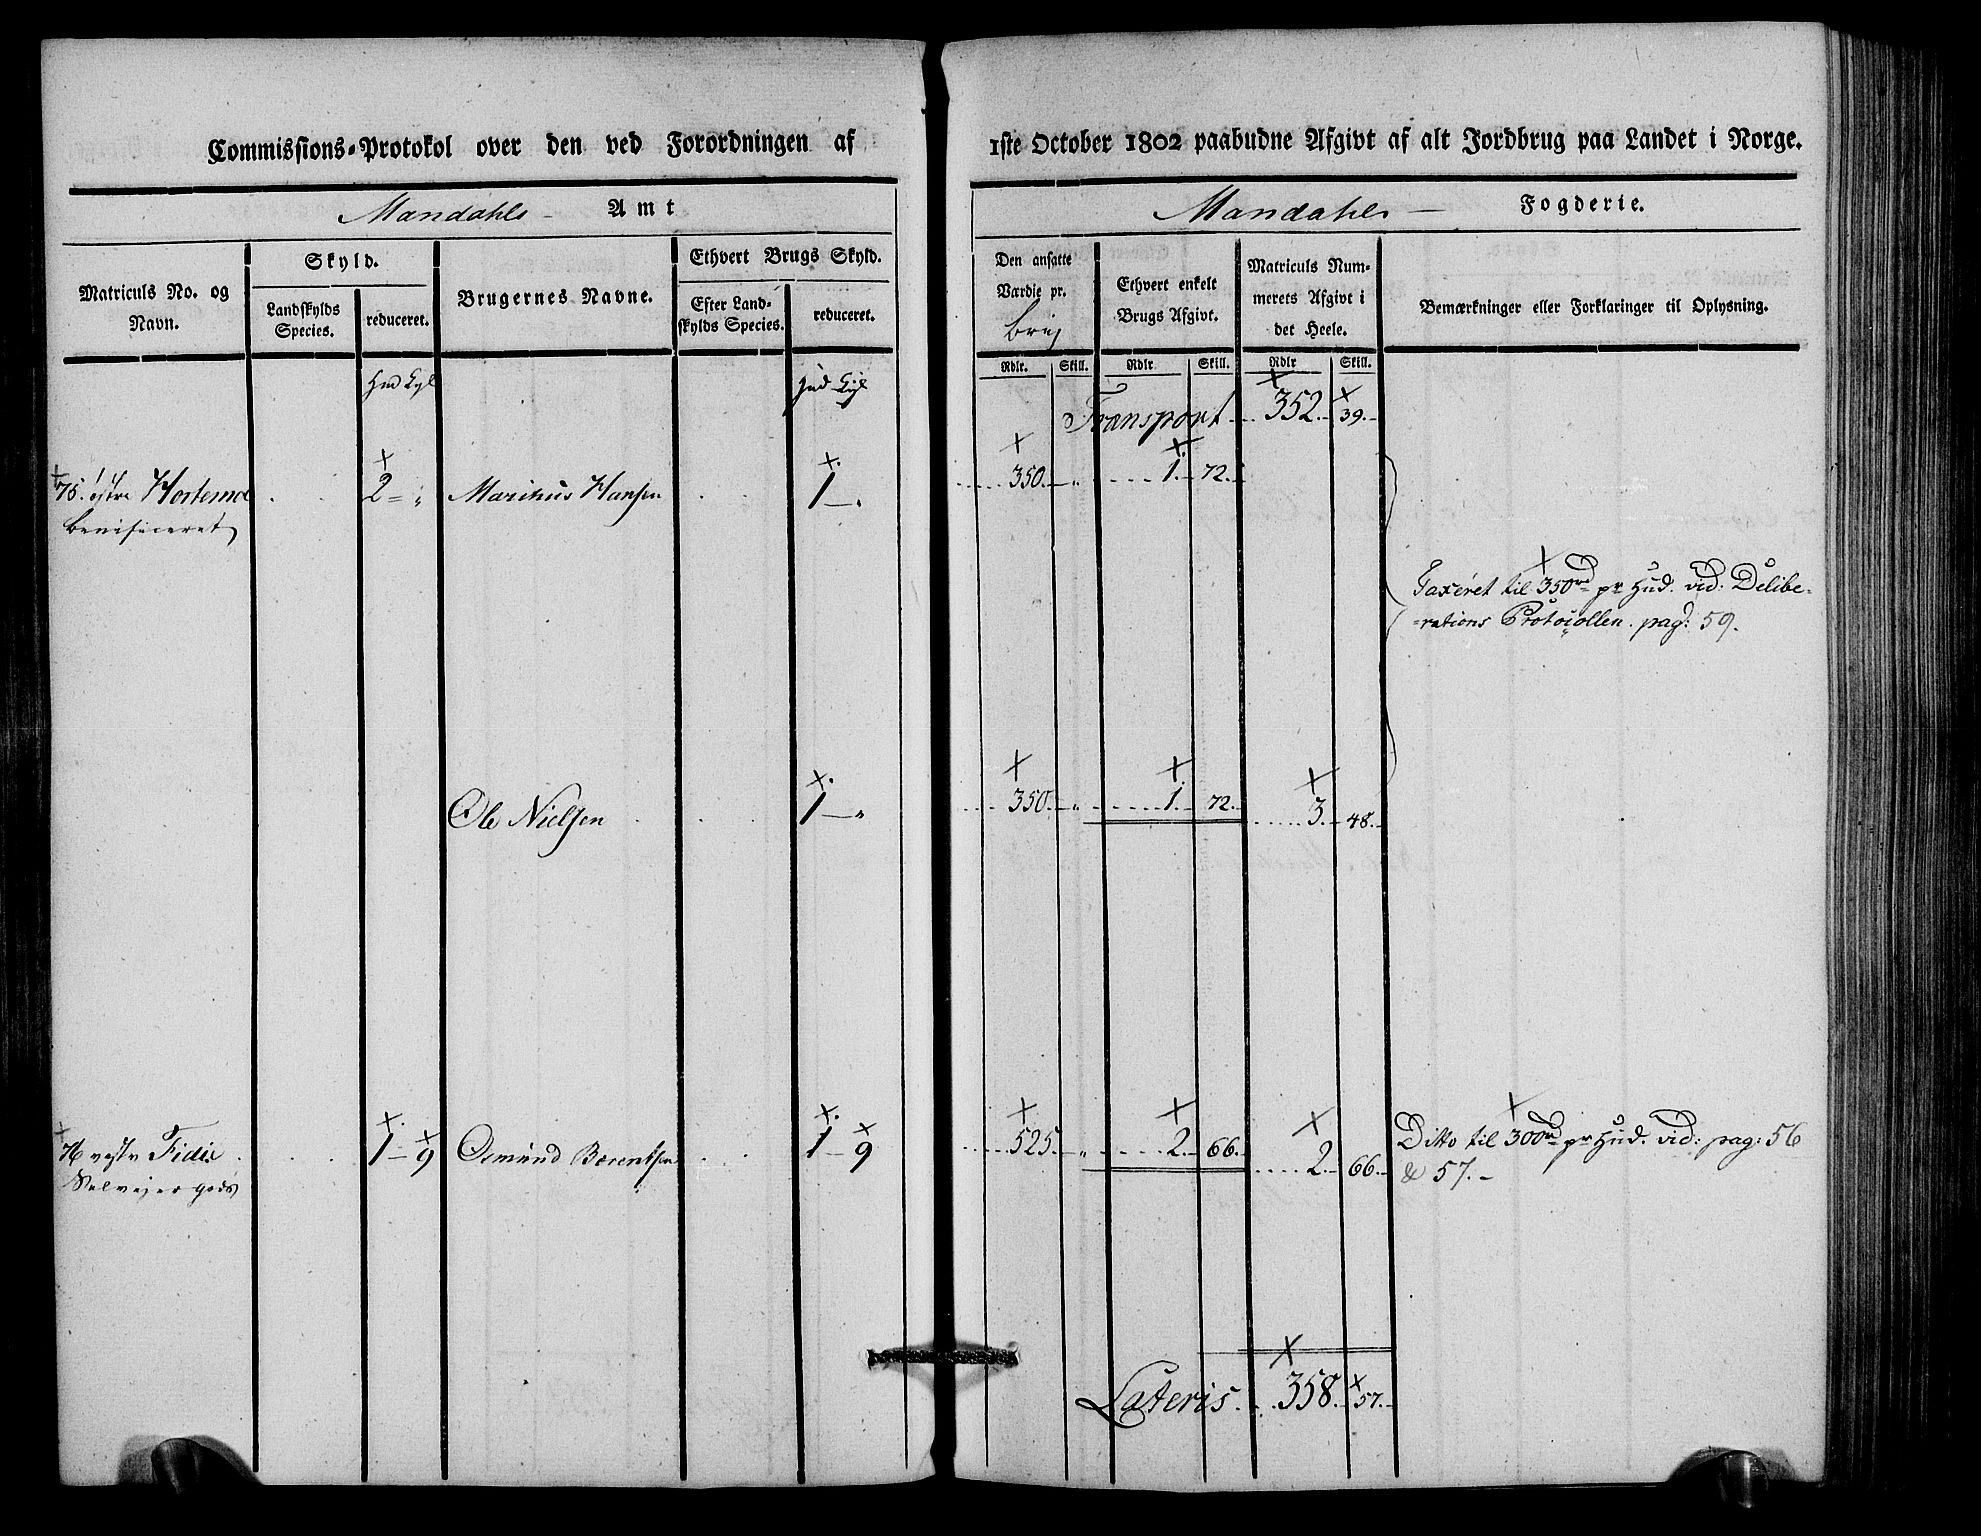 Commissions-Protokol over den ved Forordningen af
Mandahls Amt
Matriculs No. og Navn.
Skyld.
Landskylds Species.
reduceret.
Brugernes Navne.
Ethvert Brugs Skyld.
Efter Landskylds Species.
reduceret.
Hud
Hud
75. østre Hortemoe 2 = „ Marikus Hansen 1 — „
benificeret
Ole Nielsen 1 — „
76 vestr Fidie 1 — 9 Osmund Berentsen 1 — 9
Selveier gods
1ste October 1802 paabudne Afgivt af alt Jordbrug paa Landet i Norge.
Mandahls Fogderie.
Den ansatte Værdie pr. brug
Ethvert enkelt Brugs Afgivt.
Matriculs Nummerets Afgivt i det Heele.
Bemærkninger eller Forklaringer til Oplysning.
Rdlr. Skill. Rdlr Skill. Rdlr Skill.
Transport 352. 39.
350. „ 1. 72.
Taxeret til 350rd pr Hud. vid: Delibe-
-rations Protocollen. pag: 59.
350. „ 1. 72. 3. 48.
525. „ 2. 66. 2. 66. Ditto til 300rd pr Hud. vid: pag: 56
& 57.
Lateris. 358. 57.